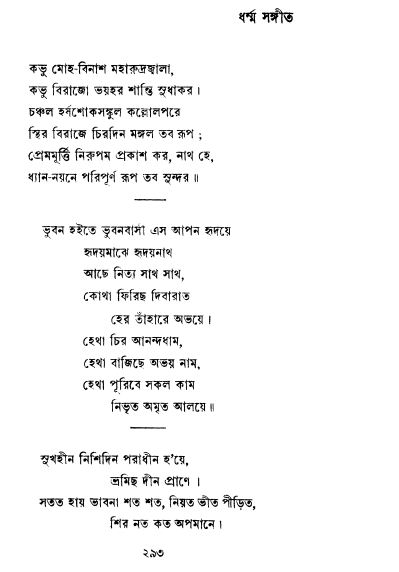 ধর্ম্ম সঙ্গীত
কভু মোহ-বিনাশ মহারুদ্রজ্বালা,
কভু বিরাজো ভয়হর শান্তি সুধাকর।
চঞ্চল হর্ষশোকসঙ্কুল কল্লোলপরে
স্থির বিরাজে চিরদিন মঙ্গল তব রূপ;
প্রেমমূর্ত্তি নিরুপম প্রকাশ কর, নাথ হে,
ধ্যান-নয়নে পরিপূর্ণ রূপ তব সুন্দর॥
ভুবন হইতে ভুবনবাসী এস আপন হৃদয়ে
হৃদয়মাঝে হৃদয়নাথ
আছে নিত্য সাথ সাথ,
কোথা ফিরিছ দিবারাত
হের তাঁহারে অভয়ে।
হেথা চির আনন্দধাম,
হেথা বাজিছে অভয় নাম,
হেথা পূরিবে সকল কাম
নিভৃত অমৃত আলয়ে॥
সুখহীন নিশিদিন পরাধীন হ'য়ে,
ভ্রমিছ দীন প্রাণে।
সতত হায় ভাবনা শত শত, নিয়ত ভীত পীড়িত,
শির নত কত অপমানে।
২৯৩